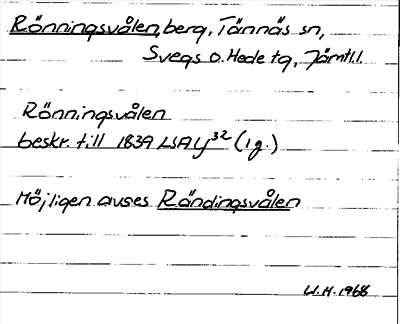 Rönningsvålen, berg, Tännäs sn,
Svegs o. Hede tg, Jämtl.l.
Rönningsvålen
beskr. till 1839 LSA Y32 (1 g.)
Möjligen avses Rändingsvålen
U.H. 1968